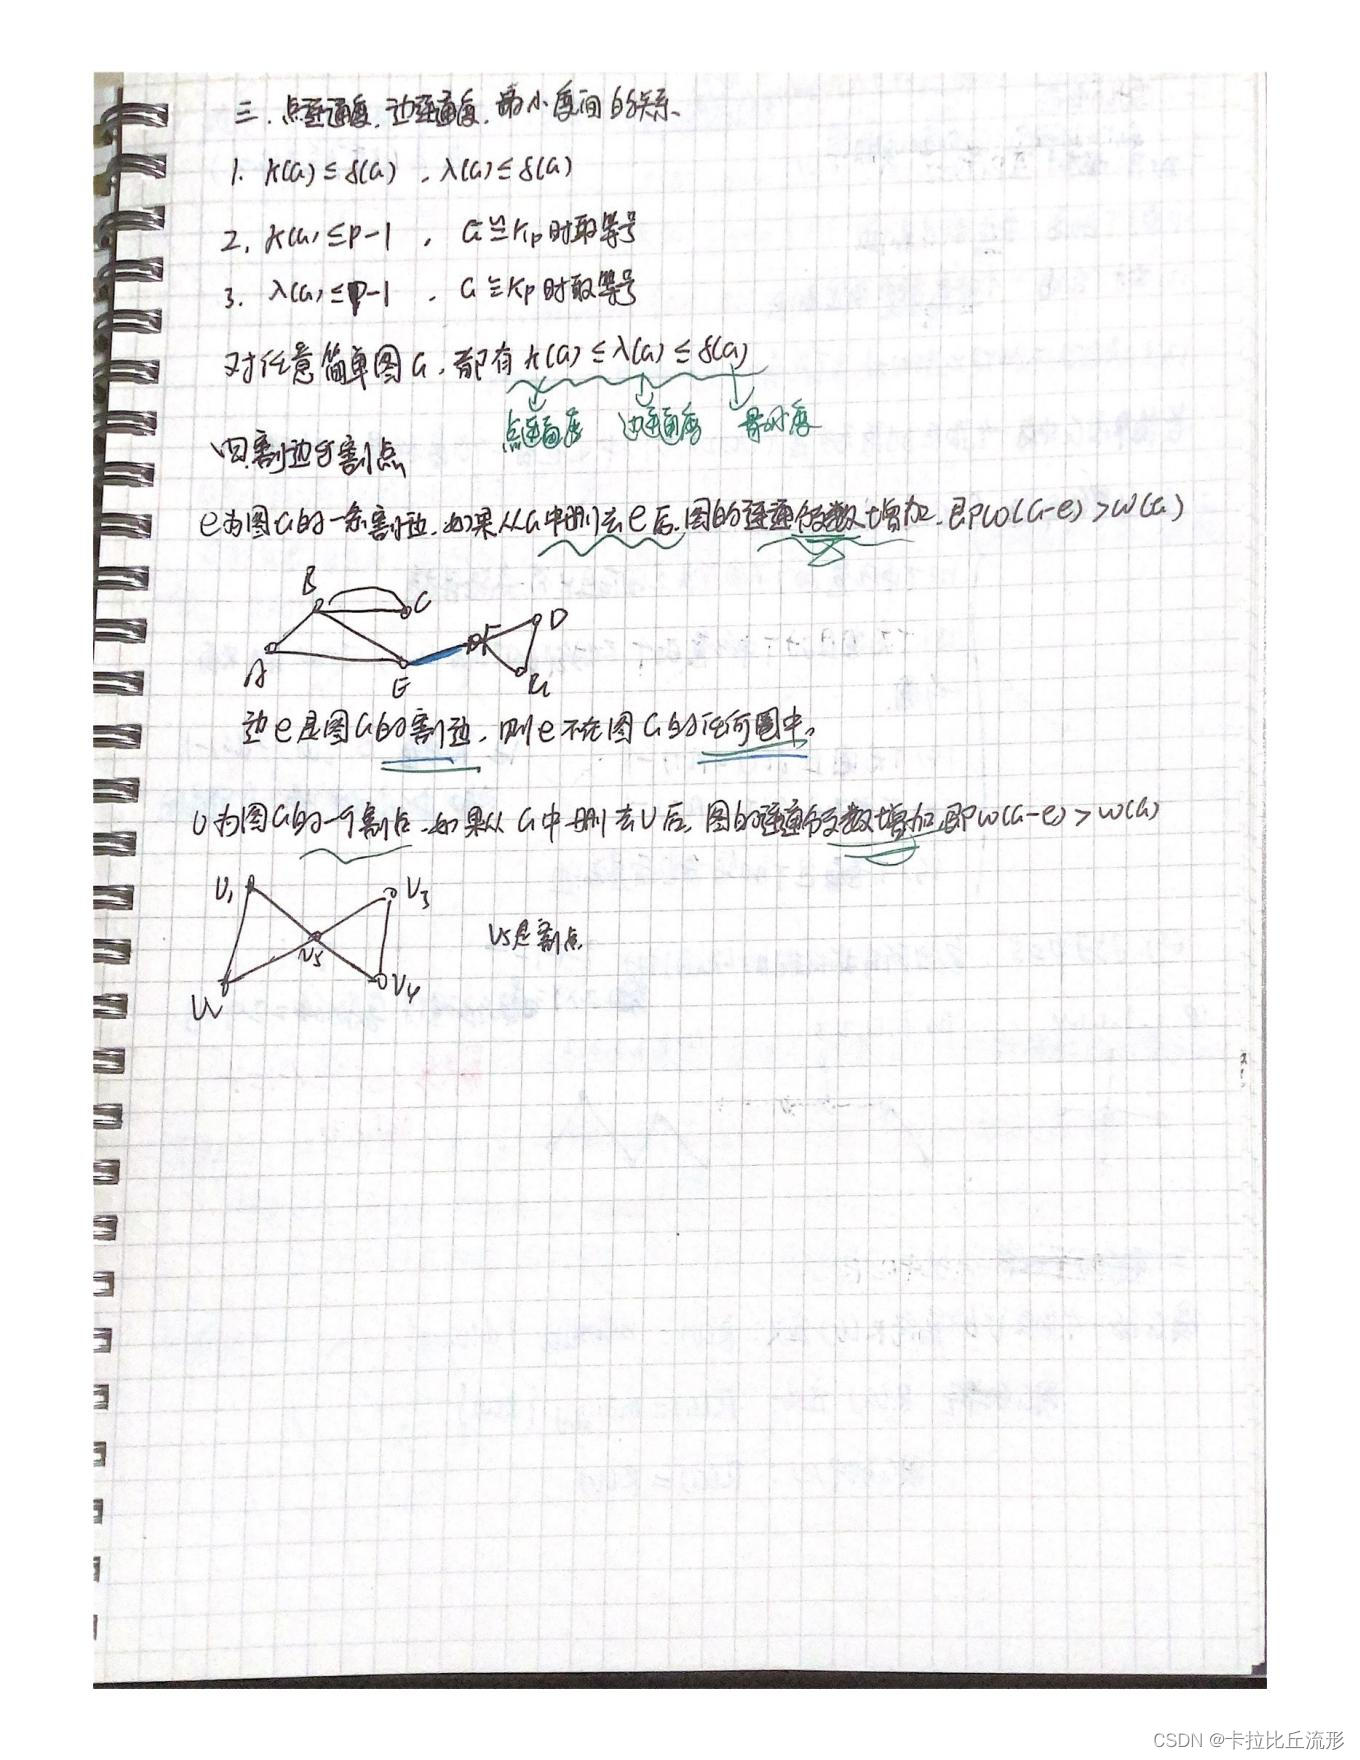 三、点连通度、边连通度、最小度间的关系、
1. κ(G)≤δ(G)，λ(G)≤δ(G)
2. κ(G)≤p-1，G≌Kp时取等号
3. λ(G)≤p-1，G≌Kp时取等号
对任意简单图G，都有κ(G)≤λ(G)≤δ(G)
点连通度 边连通度 最小度
四.割边与割点
e为图G的一条割边，如果从G中删去e后，图的连通分支数增加，即ω(G-e)>ω(G)
B
C
D
F
A
E
G
边e是图G的割边，则e不在图G的任何圈中。
v为图G的一个割点，如果从G中删去v后，图的连通分支数增加，即ω(G-e)>ω(G)
V1 V3
V5是割点
V5
V4
CSDN @卡拉比丘流形